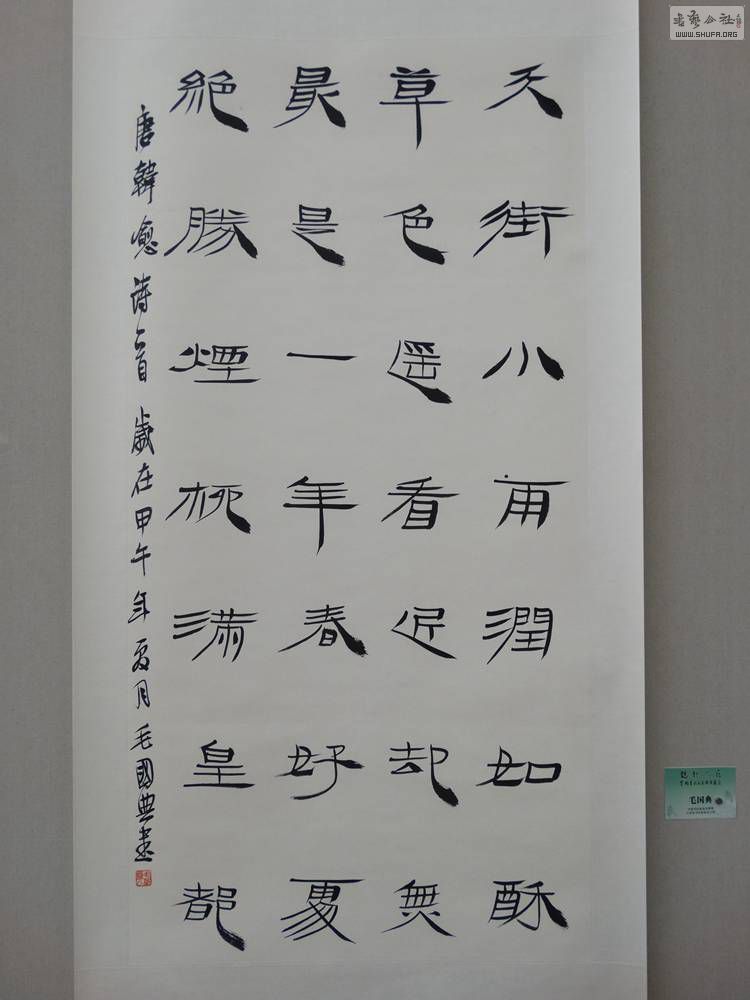 天街小雨潤如酥
草色遥看近却無
最是一年春好處
絶勝煙柳滿皇都
唐韓愈詩一首 歲在甲午年夏月毛國典書
毛国典
WWW.SHUFA.ORG